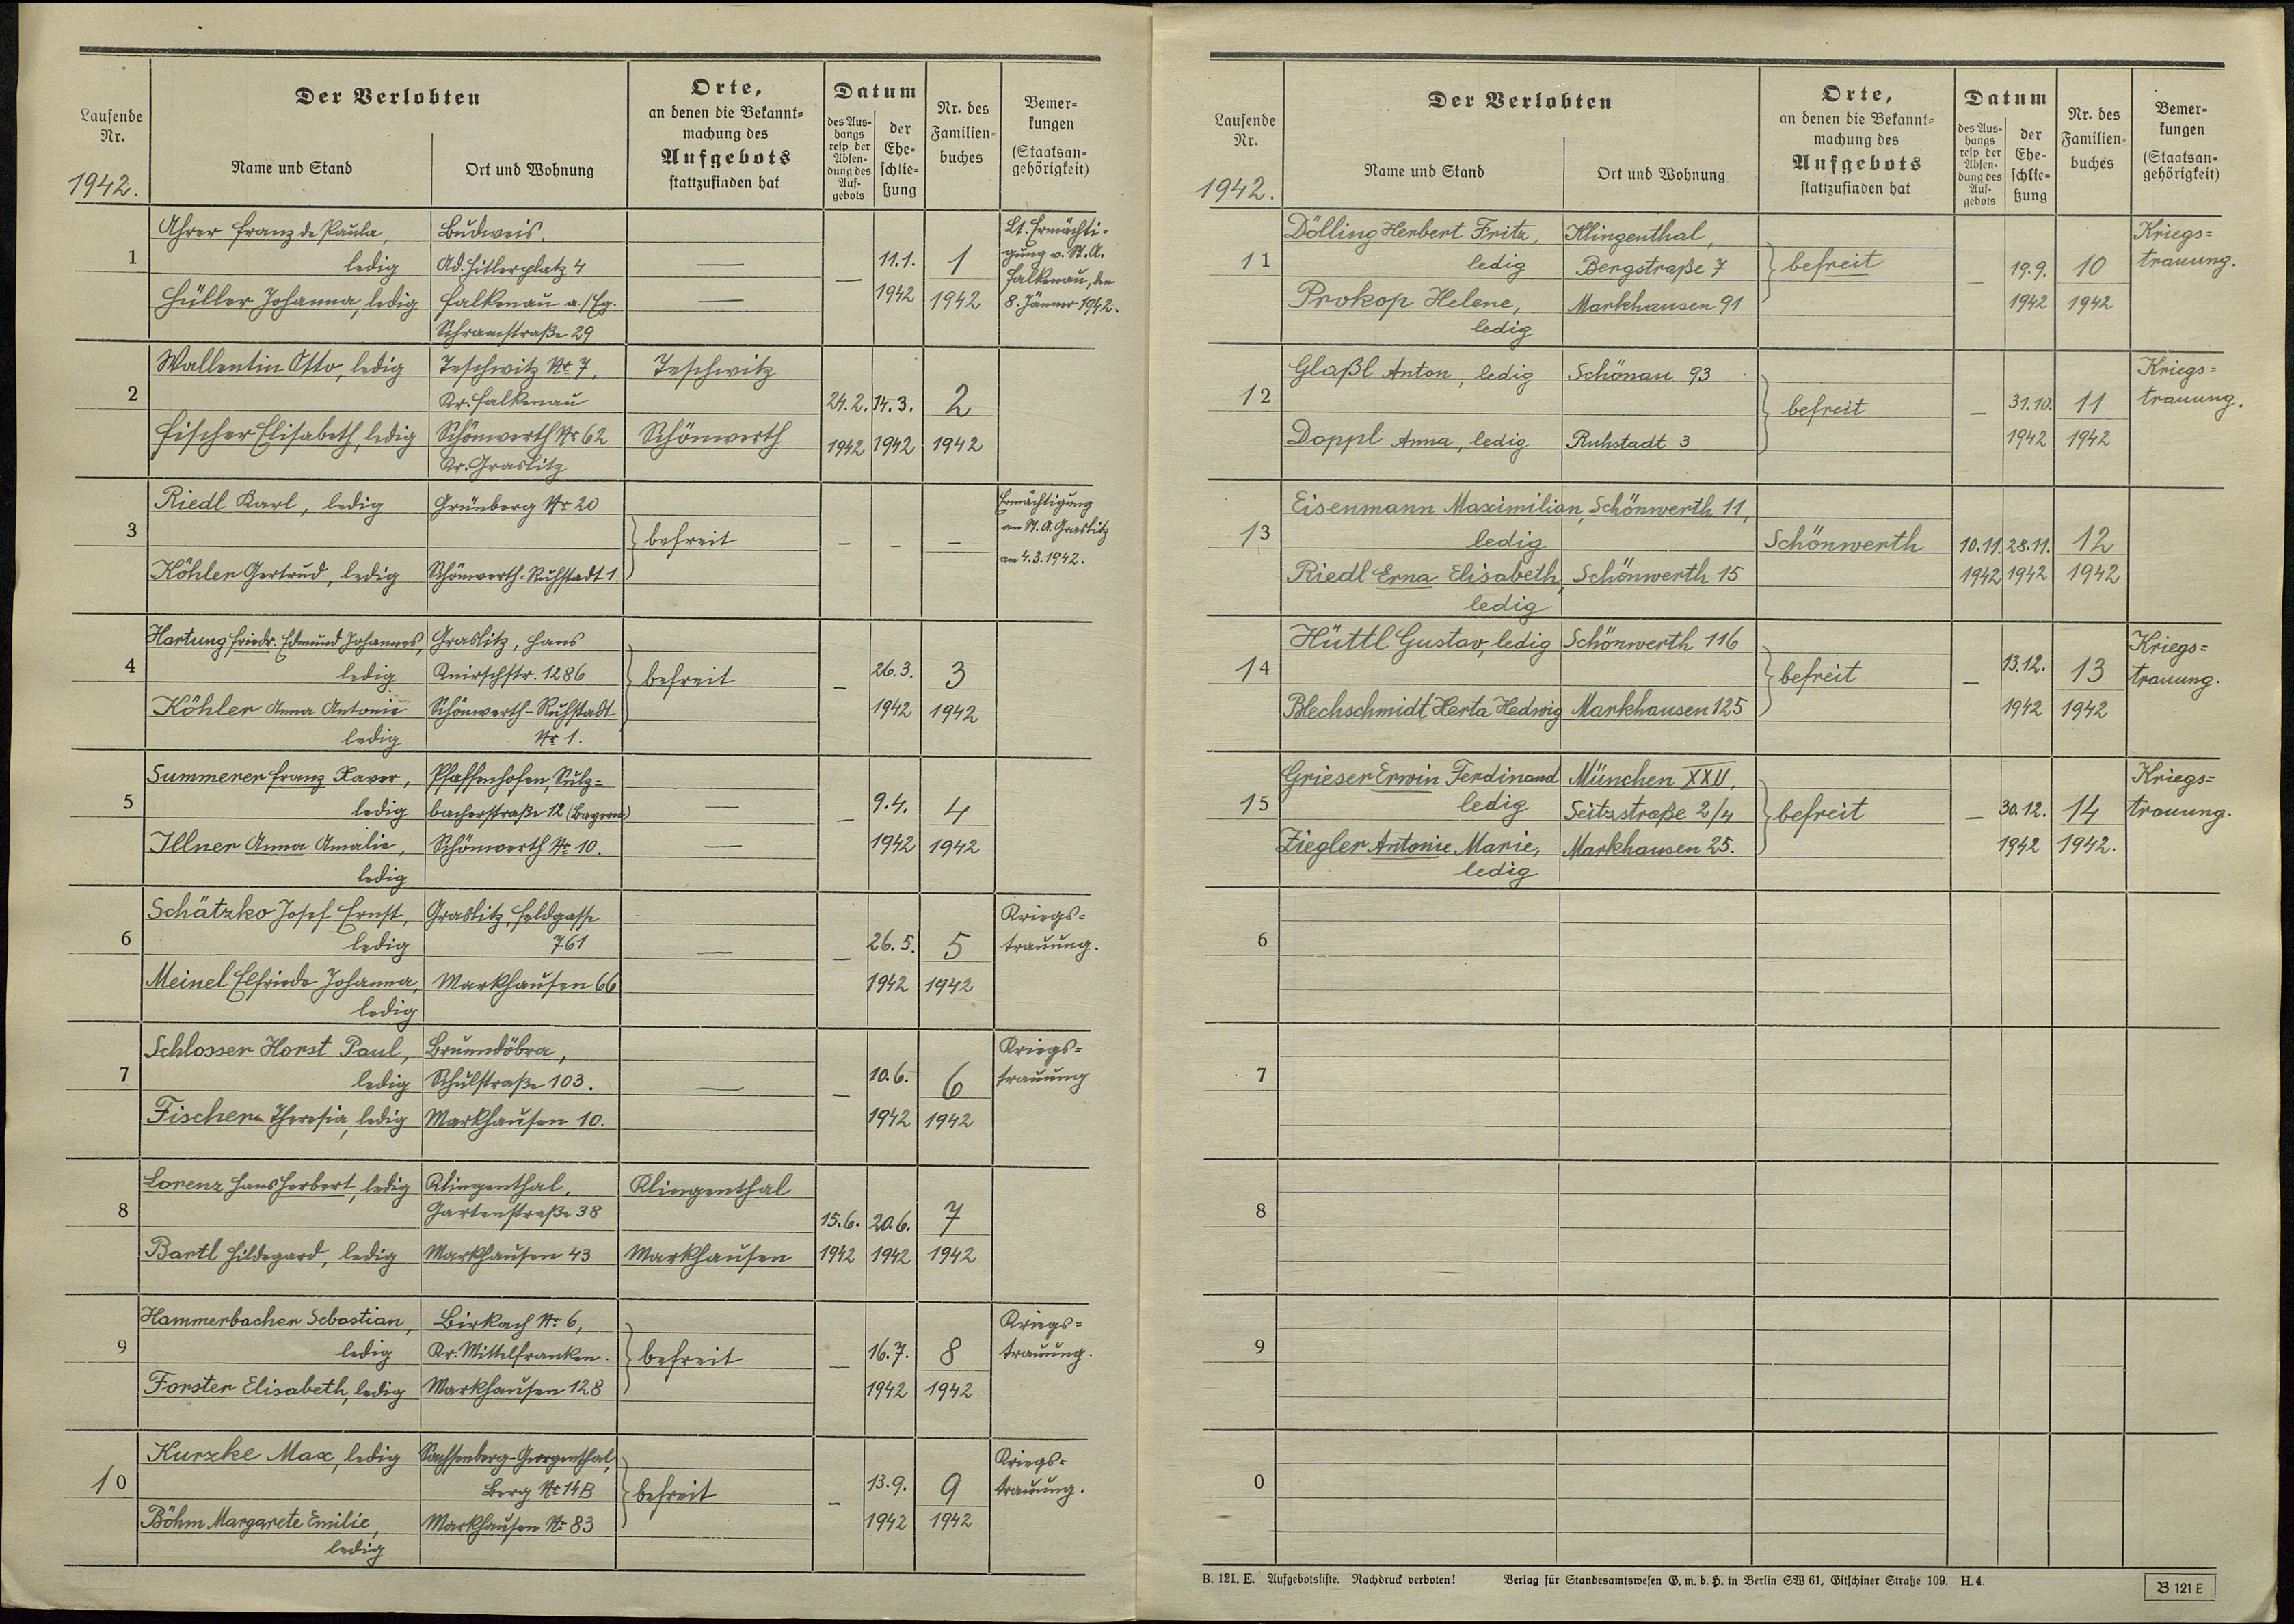 Laufende
Nr.
1942.
Der Verlobten
Name und Stand
Ort und Wohnung
Orte,
an denen die Bekannt=
machung des
Aufgebots
stattzufinden hat
Datum
des Aus-
hangs
resp der
Absen-
dung des
Auf-
gebots
der
Ehe-
schlie-
ßung
Nr. des
Familien-
buches
Bemer-
kungen
(Staatsan-
gehörigkeit)
1
Ahrer Franz de Paula,
ledig
Hüller Johanna, ledig
Budweis,
Ad. Hitlerplatz 4
Falkenau a./Eg.
Schramstraße 29
—
—
—
11.1.
1942
1
1942
Lt. Ermächti-
gung v. St. A.
Falkenau, den
8. Jänner 1942.
2
Wallentin Otto, ledig
Fischer Elisabeth, ledig
Teschwitz Nr. 7,
Kr. Falkenau
Schönwerth Nr. 62
Kr. Graslitz
Teschwitz
Schönwerth
24.2.
1942
14.3.
1942
2
1942
3
Riedl Karl, ledig
Köhler Gertrud, ledig
Grünberg Nr. 20
Schönwerth-Ruhstadt 1
befreit
—
—
—
Ermächtigung
an St. A. Graslitz
am 4.3.1942.
4
Hartung Friedr. Edmund Johannes,
ledig
Köhler Anna Antonie
ledig
Graslitz, Hans
Knirschstr. 1286
Schönwerth-Ruhstadt
Nr. 1.
befreit
—
26.3.
1942
3
1942
5
Summerer Franz Xaver,
ledig
Illner Anna Amalie,
ledig
Pfaffenhofen, Sulz=
bacherstraße 12 (Bayern)
Schönwerth Nr. 10.
—
—
—
9.4.
1942
4
1942
6
Schätzko Josef Ernst,
ledig
Meinel Elfriede Johanna,
ledig
Graslitz, Feldgasse
761
Markhausen 66
—
—
26.5.
1942
5
1942
Kriegs=
trauung.
7
Schlosser Horst Paul,
ledig
Fischer Theresia, ledig
Brunndöbra,
Schulstraße 103.
Markhausen 10.
—
—
10.6.
1942
6
1942
Kriegs=
trauung
8
Lorenz Hans Herbert, ledig
Bartl Hildegard, ledig
Klingenthal,
Gartenstraße 38
Markhausen 43
Klingenthal
Markhausen
15.6.
1942
20.6.
1942
7
1942
9
Hammerbacher Sebastian,
ledig
Forster Elisabeth, ledig
Birkach Nr. 6,
Kr. Mittelfranken.
Markhausen 128
befreit
—
16.7.
1942
8
1942
Kriegs=
trauung.
10
Kurzke Max, ledig
Böhm Margarete Emilie,
ledig
Sachsenberg-Georgenthal,
Berg Nr. 14B
Markhausen Nr. 83
befreit
—
13.9.
1942
9
1942
Kriegs=
trauung.
Laufende
Nr.
1942.
Der Verlobten
Name und Stand
Ort und Wohnung
Orte,
an denen die Bekannt=
machung des
Aufgebots
stattzufinden hat
Datum
des Aus-
hangs
resp der
Absen-
dung des
Auf-
gebots
der
Ehe-
schlie-
ßung
Nr. des
Familien-
buches
Bemer-
kungen
(Staatsan-
gehörigkeit)
11
Dölling Herbert Fritz,
ledig
Prokop Helene,
ledig
Klingenthal,
Bergstraße 7
Markhausen 91
befreit
—
19.9.
1942
10
1942
Kriegs=
trauung.
12
Glaßl Anton, ledig
Doppl Anna, ledig
Schönau 93
Ruhstadt 3
befreit
—
31.10.
1942
11
1942
Kriegs=
trauung.
13
Eisenmann Maximilian,
ledig
Riedl Erna Elisabeth,
ledig
Schönwerth 11,
Schönwerth 15
Schönwerth
10.11.
1942
28.11.
1942
12
1942
14
Hüttl Gustav, ledig
Blechschmidt Herta Hedwig
Schönwerth 116
Markhausen 125
befreit
—
13.12.
1942
13
1942
Kriegs=
trauung.
15
Grieser Erwin Ferdinand
ledig
Ziegler Antonie Marie,
ledig
München XXII,
Seitzstraße 2/4
Markhausen 25.
befreit
—
30.12.
1942
14
1942.
Kriegs=
trauung.
6
7
8
9
0
B. 121. E. Aufgebotsliste. Nachdruck verboten! Verlag für Standesamtswesen G. m. b. H. in Berlin SW 61, Gitschiner Straße 109. H.4.
B 121 E